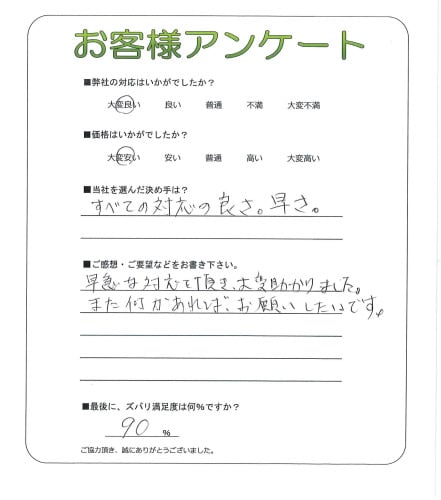 お客様アンケート
■弊社の対応はいかがでしたか？
大変良い 良い 普通 不満 大変不満
■価格はいかがでしたか？
大変安い 安い 普通 高い 大変高い
■当社を選んだ決め手は？
すべての対応の良さ。早さ。
■ご感想・ご要望などをお書き下さい。
早急な対応を頂き、大変助かりました。
また何かあれば、お願いしたいです。
■最後に、ズバリ満足度は何%ですか？
90 %
ご協力頂き、誠にありがとうございました。